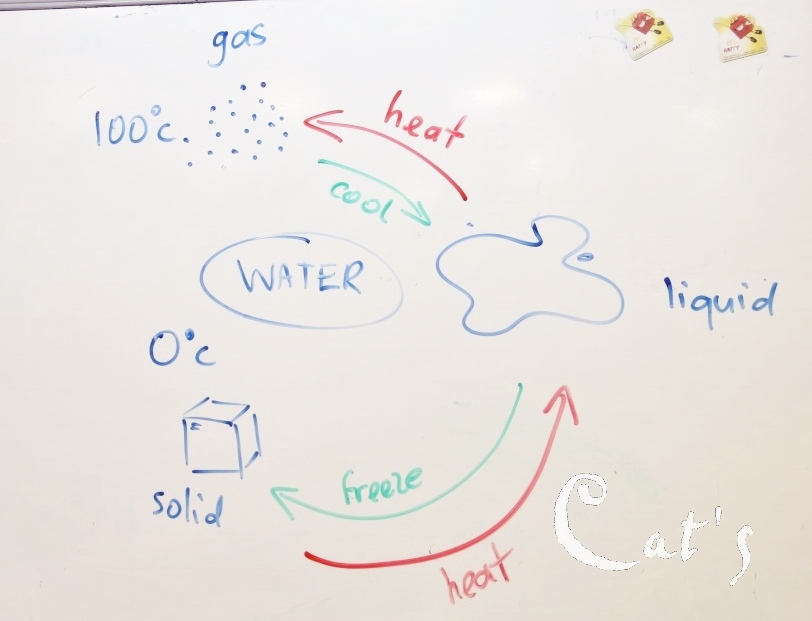 gas
100°c.
heat
cool
WATER
liquid
0°c
solid
freeze
heat
Cat's